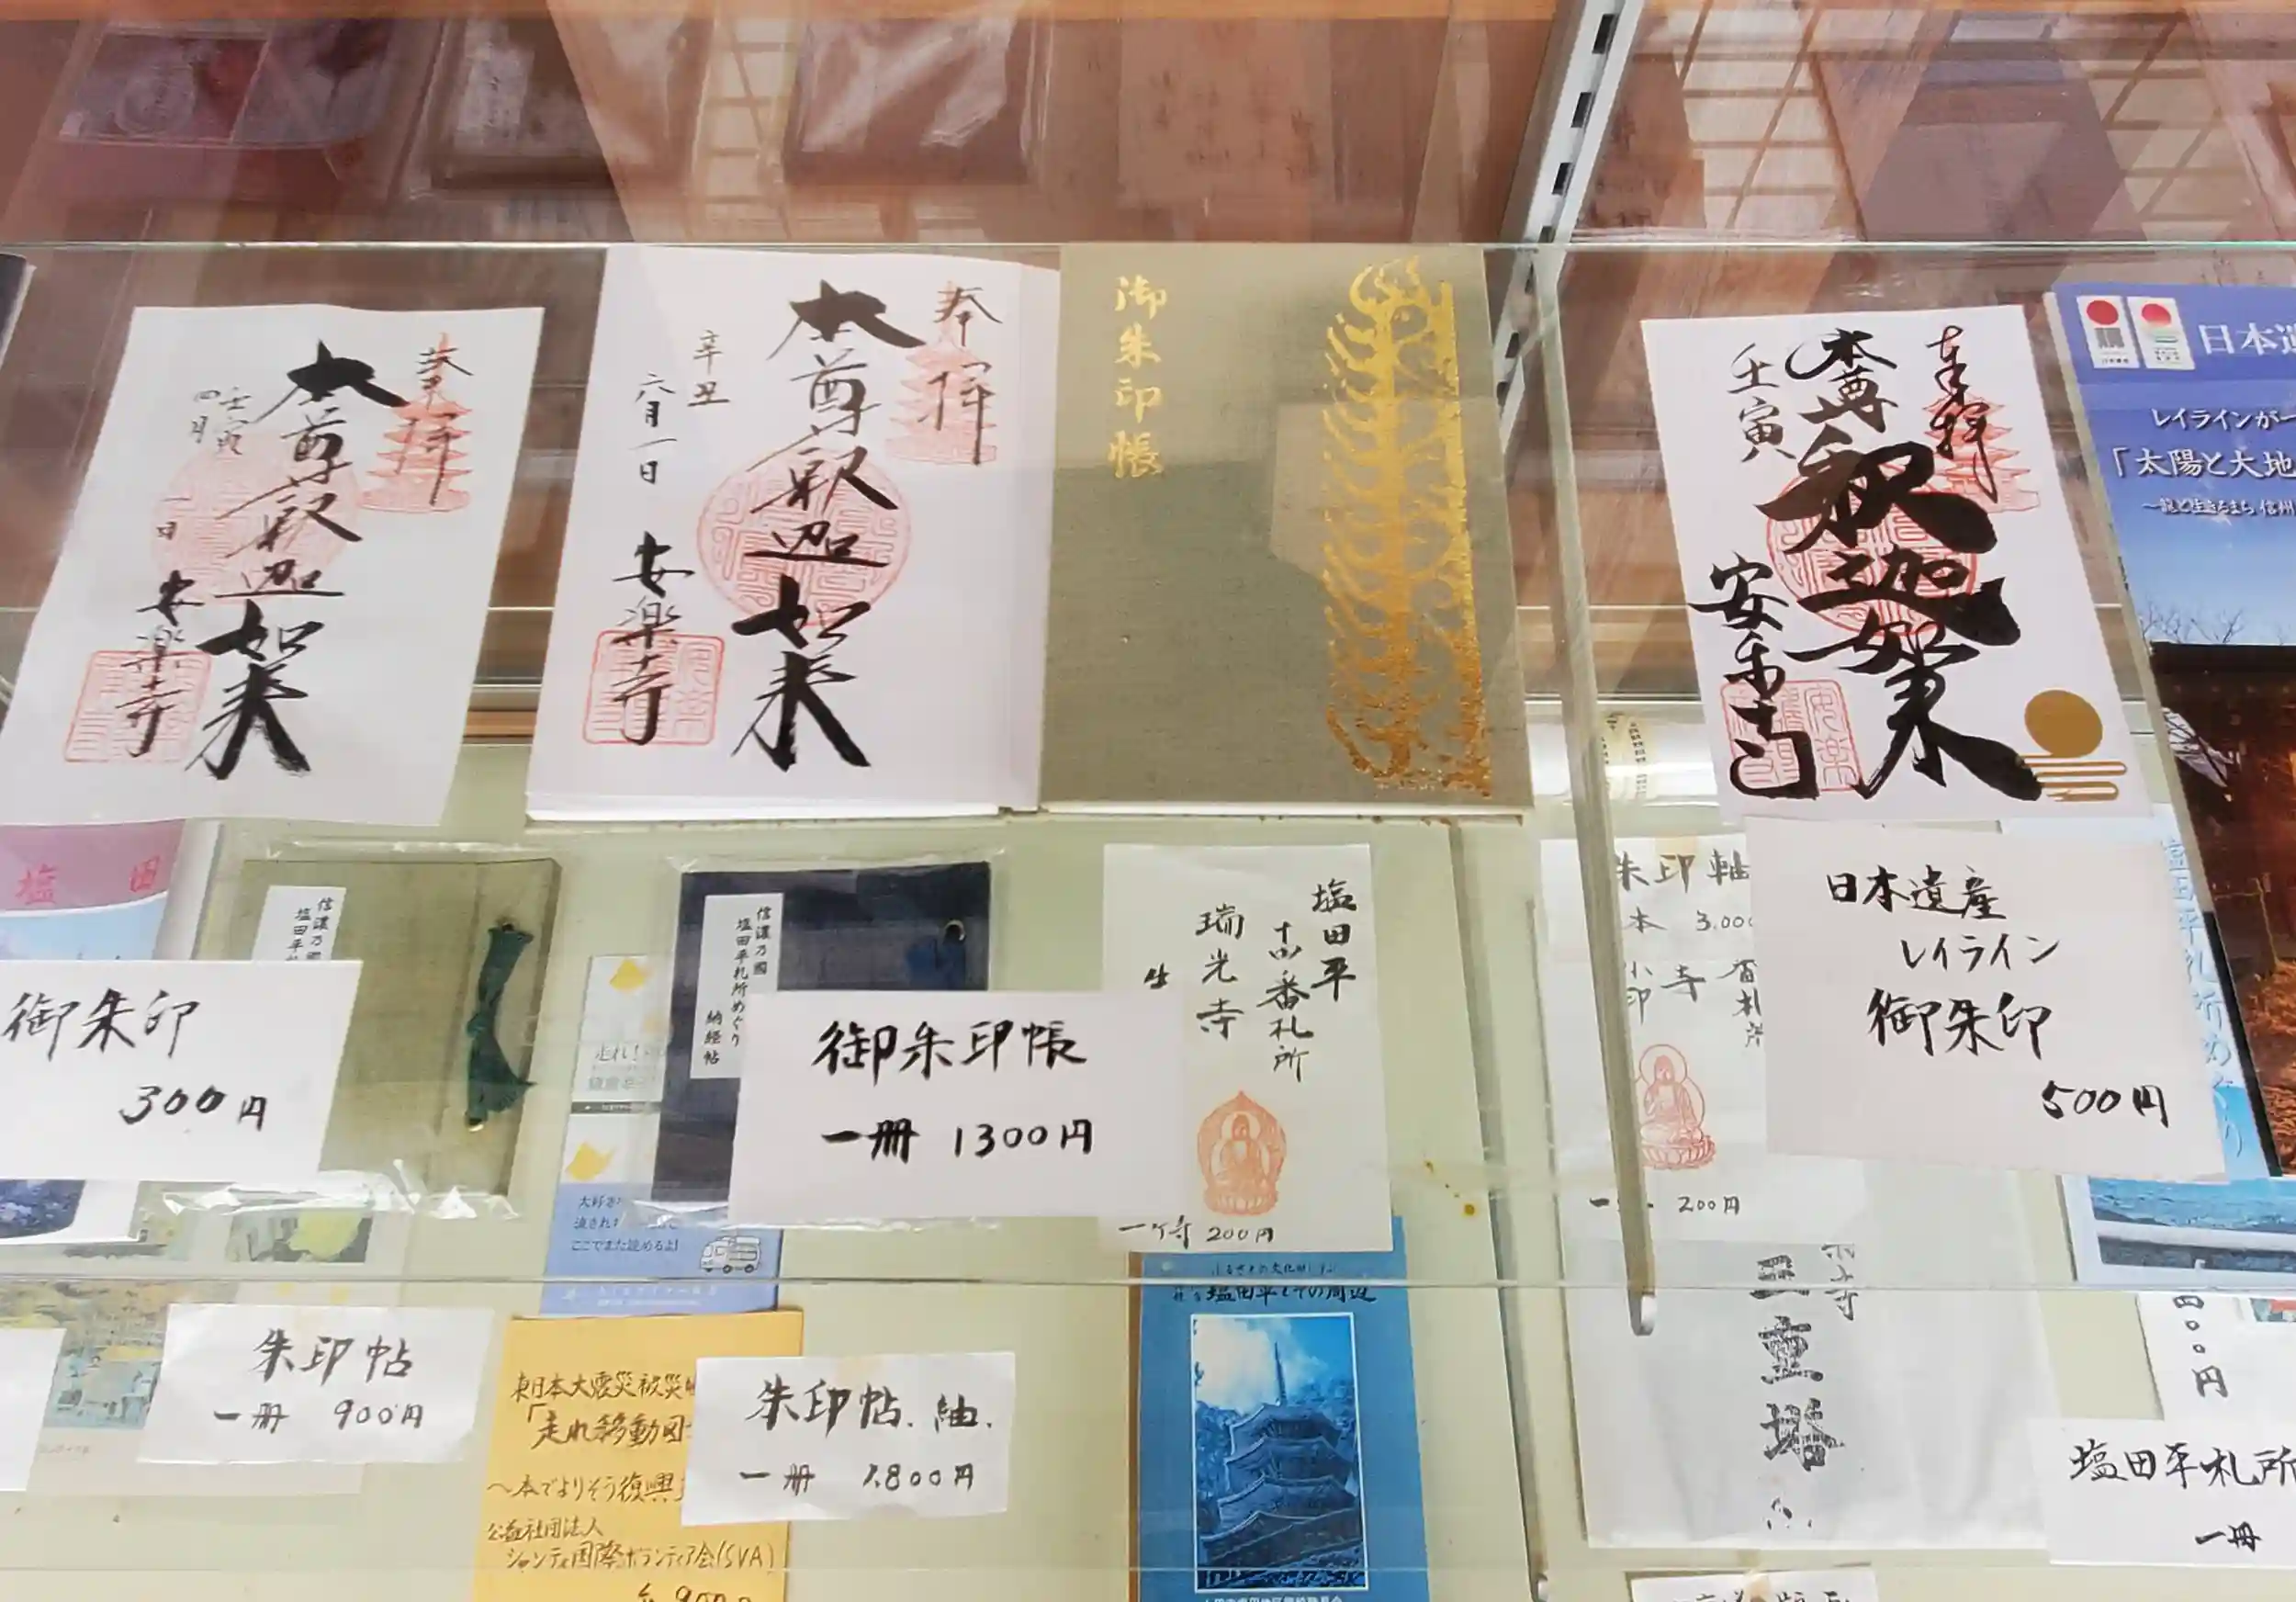 奉拝
本尊釈迦如来
壬寅
四月
一日
安楽寺
奉拝
本尊釈迦如来
辛丑
六月一日
安楽寺
御朱印帳
奉拝
本尊釈迦如来
壬寅
安楽寺
日本遺
レイラインが
「太陽と大地
塩田
信濃乃國
塩田平札
御朱印
300円
信濃乃國
塩田平札所めぐり
納経帖
御朱印帳
一冊 1300円
塩田平
十四番札所
瑞光寺
一ケ寺 200円
朱印軸
本 3.000
200円
日本遺産
レイライン
御朱印
500円
走れ!
ここでまた読めるよ!
朱印帖
一冊 900円
東日本大震災被災
「走れ移動図
〜本でよりそう復興
公益社団法人
シャンティ国際ボランティア会(SVA)
朱印帖.紬.
一冊 1.800円
塩田平とその周辺
三重塔
円
塩田平札所
一冊